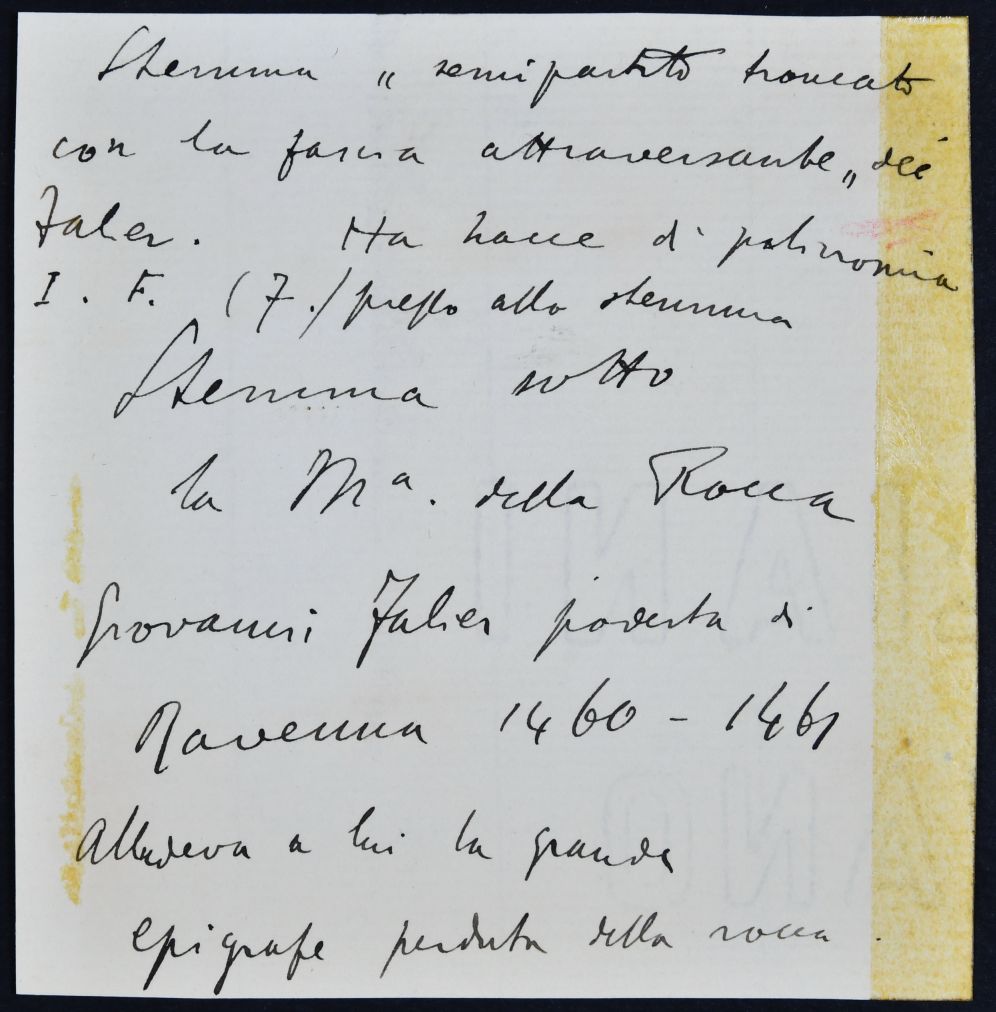 Stemma „ semipartito troncato
con la fascia attraversante „ dei
Falier. Ha tracce di policromia
I. F. (F.) presso allo stemma
Stemma sotto
la Mª. della Rocca
Giovanni Falier podestà di
Ravenna 1460 - 1461
Alludeva a lui la grande
epigrafe perduta della rocca.